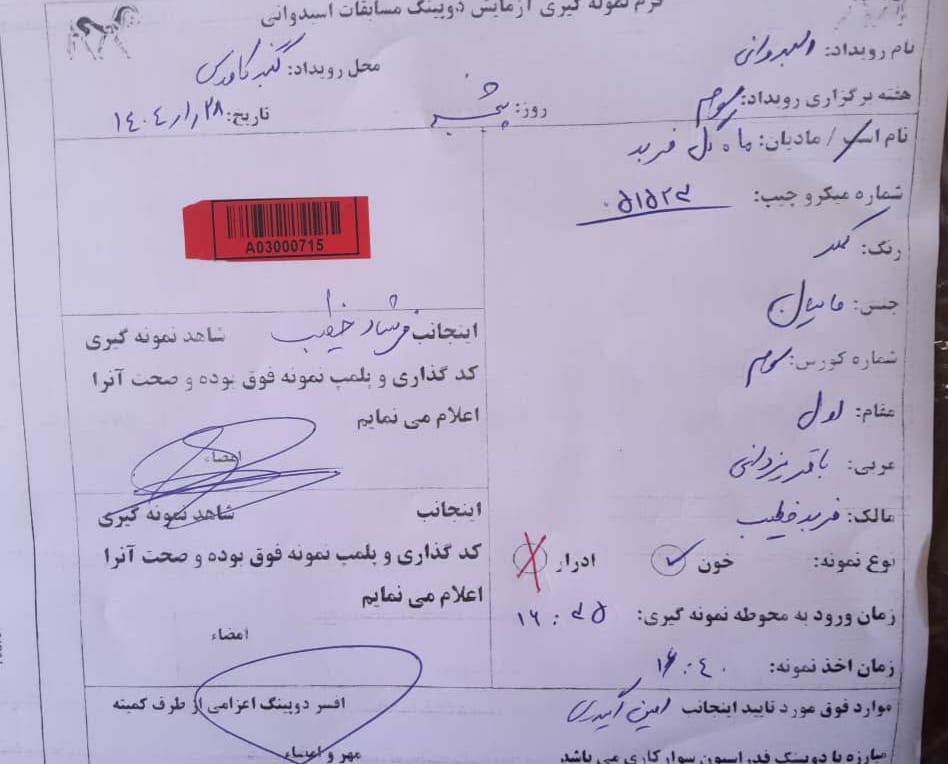 فرم نمونه گیری آزمایش دوپینگ مسابقات اسبدوانی
نام رویداد: اسبدوانی
محل رویداد: گنبد کاووس
هفته برگزاری رویداد: سوم
روز: پنجشنبه
تاریخ: ۱۴۰۴/۱/۲۸
نام اسب / مادیان: ماه گل فرید
شماره میکرو چیپ:
رنگ: کهر
جنس: مادیان
شماره کورس: سوم
مقام: اول
مربی: باقر یزدانی
مالک: فرید خطیب
نوع نمونه: خون ادرار
زمان ورود به محوطه نمونه گیری:
زمان اخذ نمونه: ۱۶:۴۰
A03000715
اینجانب فرشاد خطیب شاهد نمونه گیری
کد گذاری و پلمپ نمونه فوق بوده و صحت آنرا
اعلام می نمایم
امضاء
اینجانب شاهد نمونه گیری
کد گذاری و پلمپ نمونه فوق بوده و صحت آنرا
اعلام می نمایم
امضاء
موارد فوق مورد تایید اینجانب امین افسر دوپینگ اعزامی از طرف کمیته
مبارزه با دوپینگ فدراسیون سوارکاری می باشد مهر و امضاء